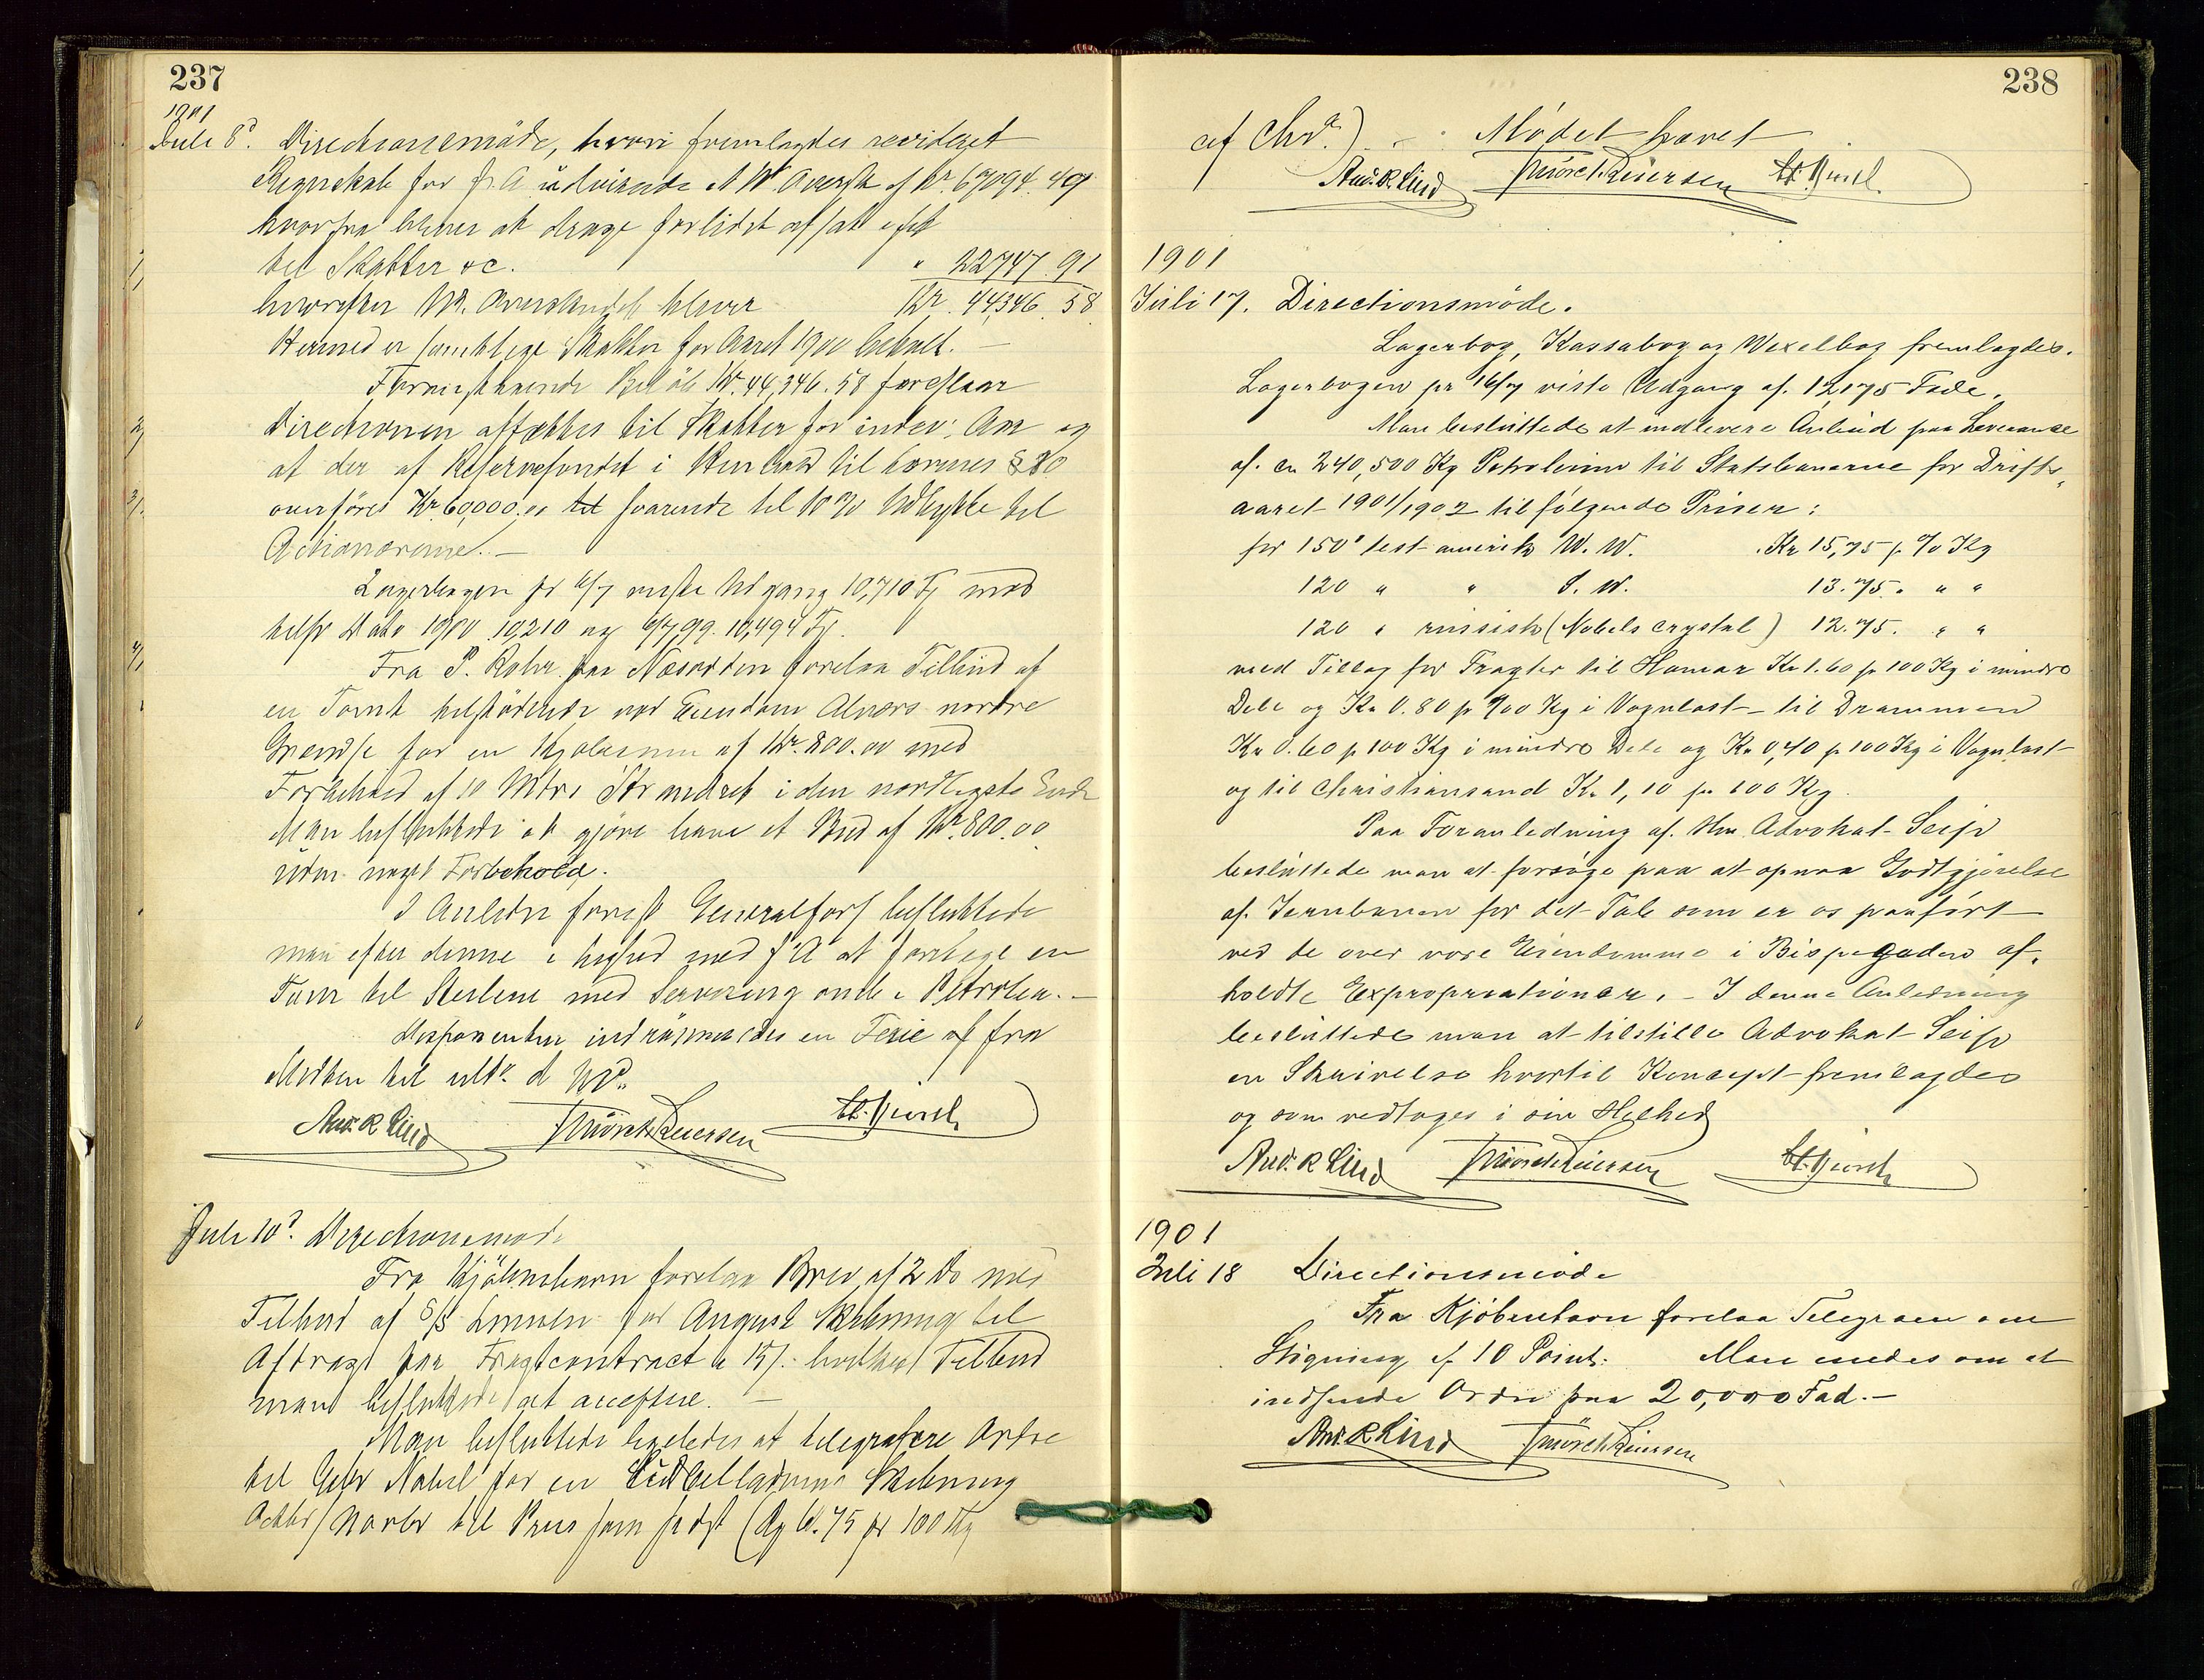 237
1901
Juli 8d. Directionsmøde, hvori fremlagdes revideret
Regnskab for f. A. udvisende et Nt. Oversk. af Kr. 67,094.49
hvorfra bliver at drage forlidet afsat
til Skatter &c. " 22747.91
hvorefter Nt. Overskudet bliver Kr. 44,346.58
Hermed er samtlige Skatter for Aaret 1900 betalt. —
Foranstaaende Beløb Kr. 44,346.58 foreslaar
Directionen afsættes til Skatter for indev. Aar og
at der af Reservefondet i Henhold til Lovenes §
overføres Kr. 60,000.00 svarende til 10 % Udbytte til
Actionærerne. —
Lagerbogen pr 6/7 viste Udgang 10,710 Fj mod
til Dato 1900 10,210 og 6/7 99. 10,494 Fj.
Fra P. Rohr paa Næsodden forelaa Tilbud af
en Tomt tilstødende vor Eiendom Alværs nordre
Grændse for en Kjøbesum af Kr. 800.00 med
Forbehold af 10 Mtrs Strandret i den nordligste Ende
Man besluttede at gjøre ham et Bud af Kr. 800.00
uden noget Forbehold.
I Anledn. forest. Generalfors. besluttede
man efter denne i Lighed med f. A. at foretage en
Tour til Steilene med Servering ombord i Petrolea. —
Disponenten indrømmedes en Ferie af fra
Midten til ult. d. Md.
And. R Lind Mørch Reiersen
Juli 10d Directionsmøde
Fra Kjøbenhavn forelaa Brev af 2 ds med
Tilbud af S/S for August Skibning til
Aftragt paa Fragtcontract a 15/- hvilket Tilbud
man besluttede at acceptere. —
Man besluttede ligeledes at telegrafere Ordre
til Gebr Nobel for en Seilskibsladning Skibning
Octbr/Novbr til Priis som sidst ( 6.75 pr 100 Kg
238
af Chra.) — Mødet hævet
And. R. Lind Mørch Reiersen
1901
Juli 17. Directionsmøde.
Lagerbog, Kassabog og Vexelbog fremlagdes.
Lagerbogen pr 16/7 viste Udgang af. 12,175 Fade.
Man besluttede at indlevere Anbud paa Leverance
af. ca 240,500 Kg Petroleum til Statsbanerne for Drifts-
aaret 1901/1902 til følgende Priser:
for 150° test amerik W. W. Kr 15,75 p. % Kg
120 " " S. W. 13.75. " "
120 " russisk (Nobels Crystal) 12.75. " "
med Tillæg for Fragter til Hamar Kr 1.60 p 100 Kg i mindre
Dele og Kr 0.80 p 100 Kg i Vognlast — til Drammen
Kr 0.60 p 100 Kg i mindre Dele og Kr 0,40 p 100 Kg i Vognlast
og til Christiansand Kr. 1,10 pr 100 Kg.
Paa Foranledning af. Hr. Advokat Seip
besluttede man at forsøge paa at opnaa Godtgjørelse
af. Jernbanen for det Tab som er os paaført
ved de over vore Eiendomme i Bispegaden af-
holdte Expropriationer. — I denne Anledning
besluttede man at tilstille Advokat Seip
en Skrivelse hvortil Koncept fremlagdes
og som vedtoges i sin Helhed
And. R Lind Mørch Reiersen
1901
Juli 18 Directionsmøde
Fra Kjøbenhavn forelaa Telegram om
Stigning af 10 Point. Man enedes om at
indsende Ordre paa 20,000 Fad. —
And. R Lind Mørch Reiersen